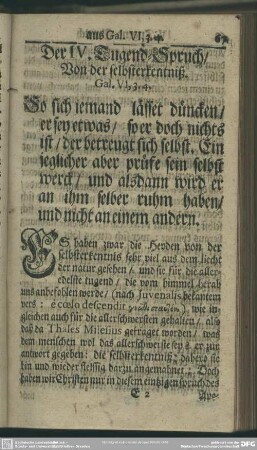 aus Gal. VI, 3. 4.
Der IV. Tugend-Spruch/
Von der selbsterkentniß.
Gal. VI, 3. 4.
So sich iemand lässet düncken/
er sey etwas/ so er doch nichts
ist/ der betreugt sich selbst. Ein
ieglicher aber prüfe sein selbst
werck/ und alsdann wird er
an ihm selber ruhm haben/
und nicht an einem andern.
ES haben zwar die Heyden von der
selbsterkentnis sehr viel aus dem liecht
der natur gesehen/ und sie für die aller-
edelste tugend/ die vom himmel herab
uns anbefohlen werde/ (nach Juvenalis bekantem
vers: è cœlo descendit γνῶθι σεαυτόν), wie in-
gleichen auch für die allerschwersten gehalten/ als
daß da Thales Milesius gefraget worden/ was
dem menschen wol das allerschwerste sey? er zur
antwort gegeben: die selbsterkentniß: dahero sie
hin und wieder fleissig darzu angemahnet: Doch
haben wir Christen nur in diesem eintzigen spruch des
E 2
Apo-